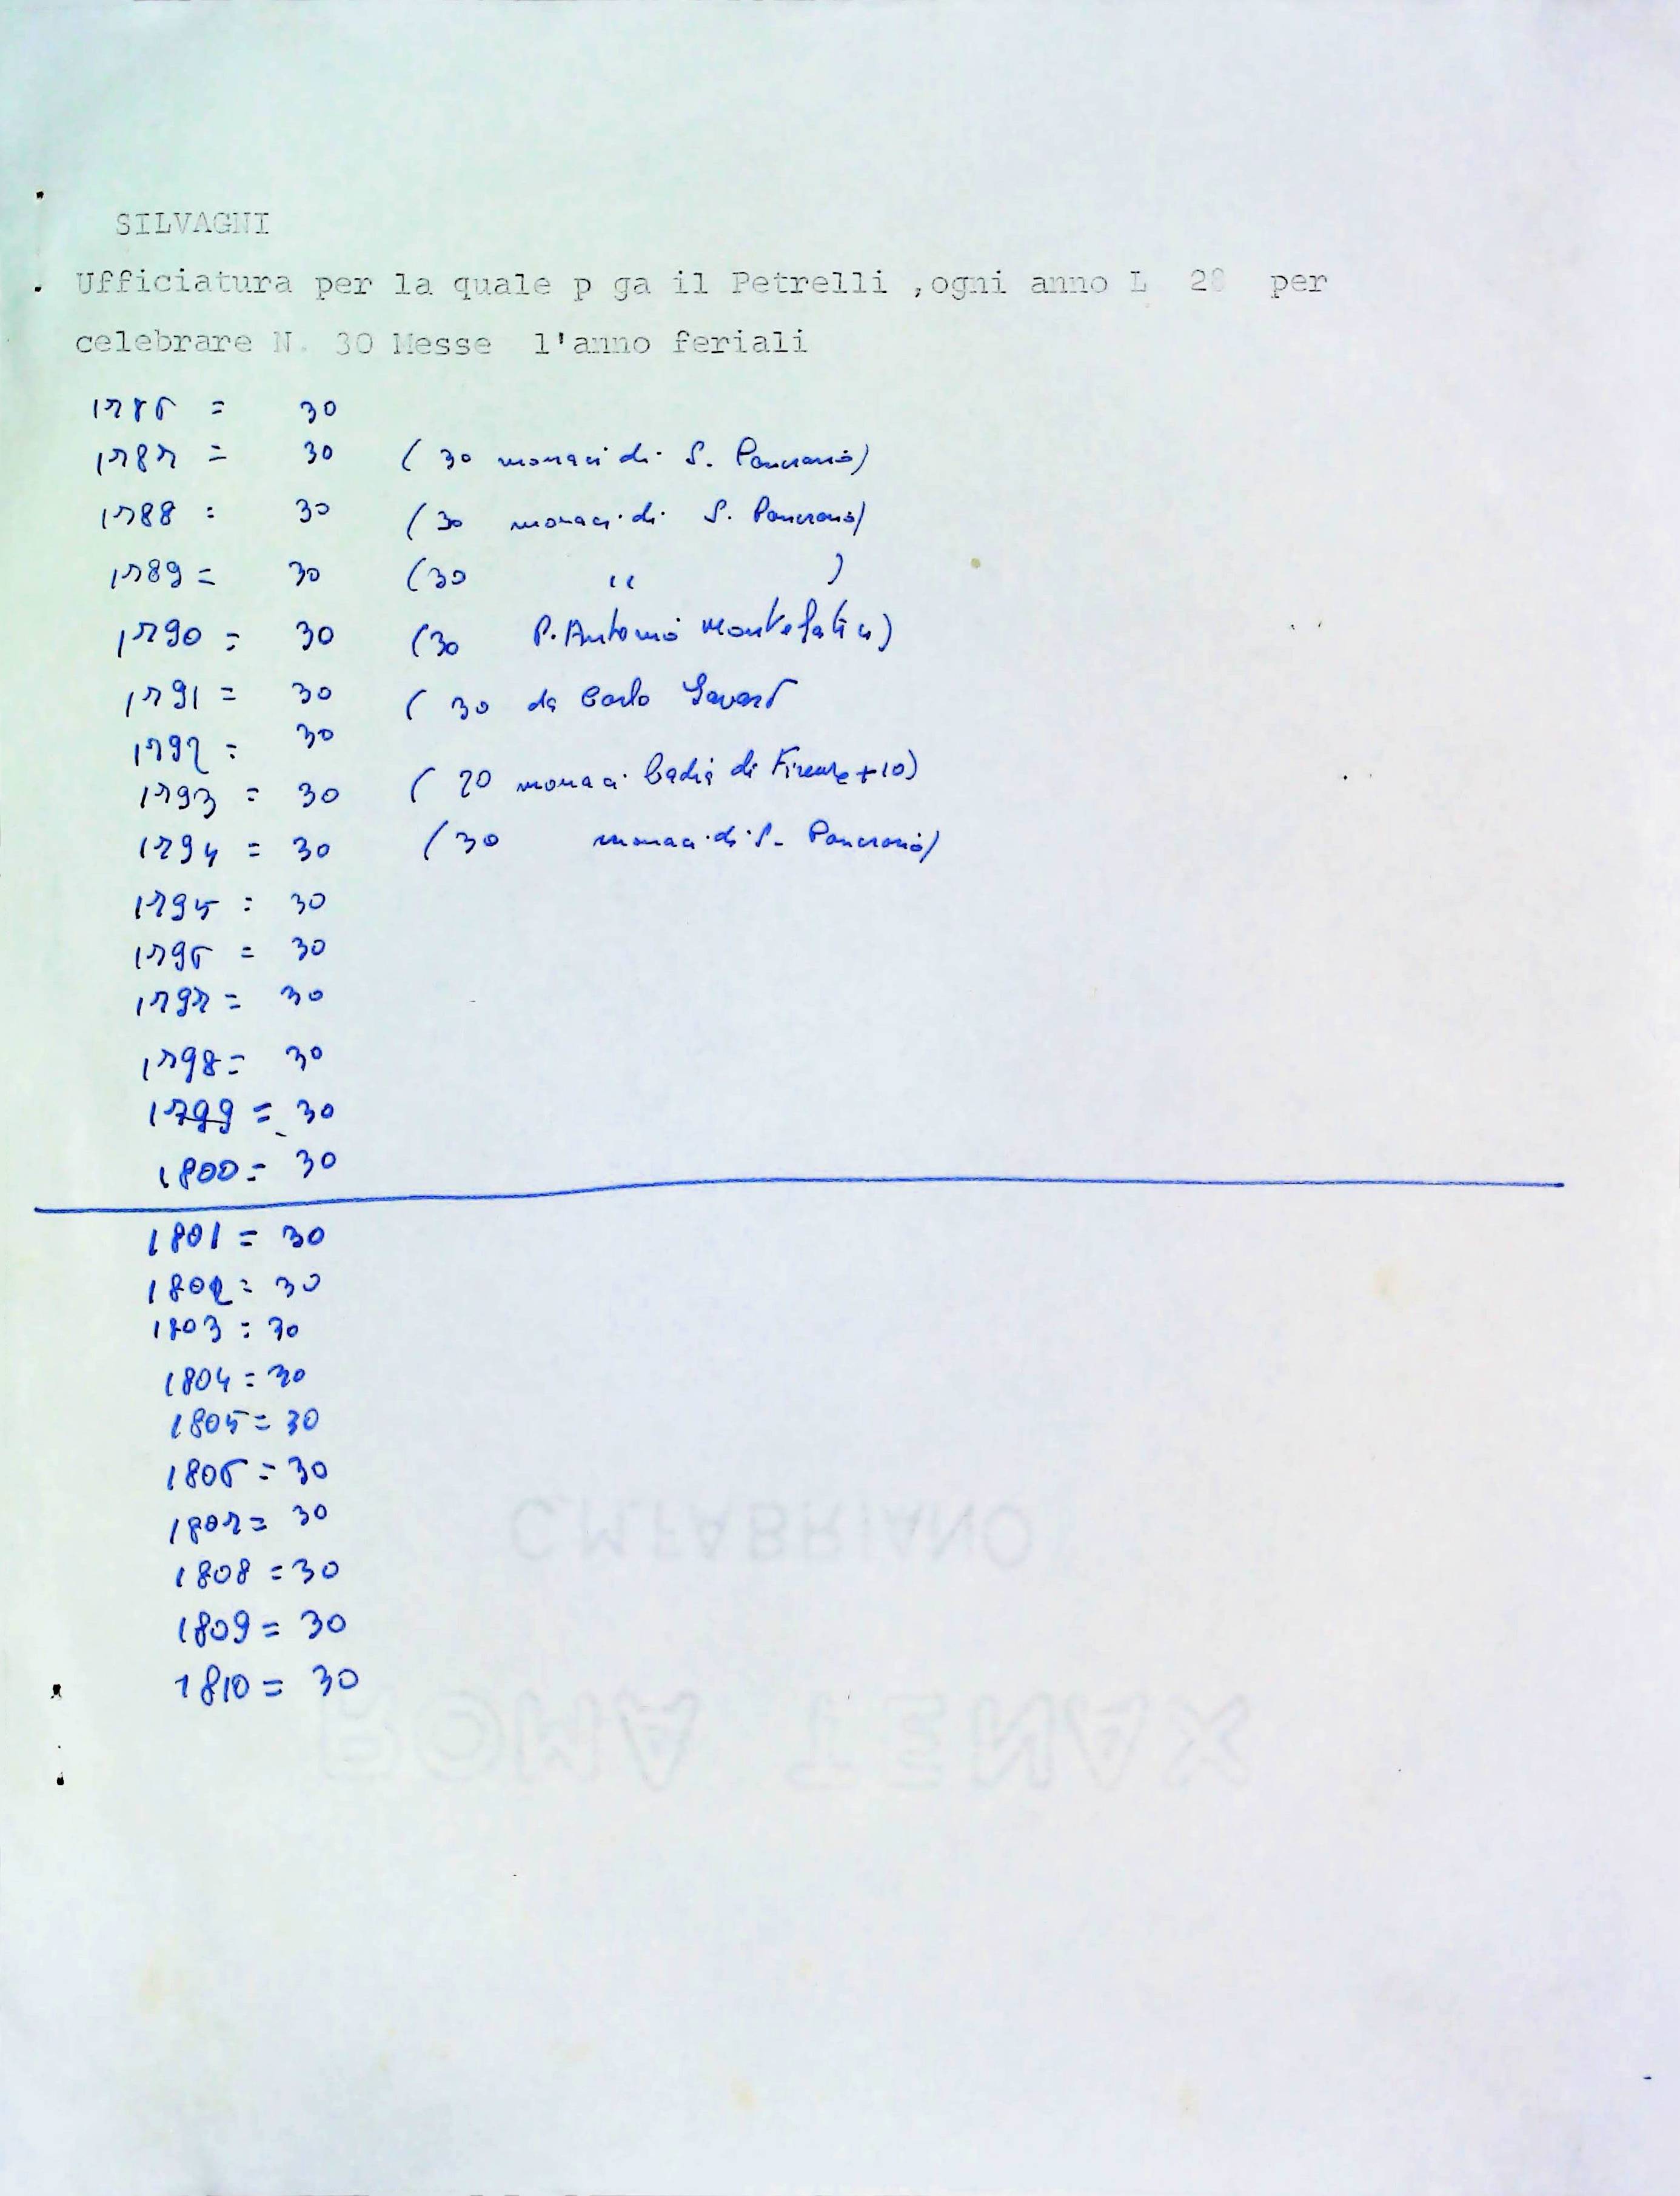 SILVAGNI
Ufficiatura per la quale p ga il Petrelli ,ogni anno L 28 per
celebrare N. 30 Messe l'anno feriali
1786 = 30
1787 = 30 ( 30 monaci di S. Pancrazio)
1788 = 30 (30 monaci di S. Pancrazio)
1789 = 30 (30 " )
1790 = 30 (30 P. Antonio Montelatici)
1791 = 30 ( 30 da Carlo
1792 = 30
1793 = 30 ( 20 monaci Badia di Firenze +10)
1794 = 30 (30 monaci di S. Pancrazio)
1795 = 30
1796 = 30
1797 = 30
1798 = 30
1799 = 30
1800 = 30
1801 = 30
1802 = 30
1803 = 30
1804 = 30
1805 = 30
1806 = 30
1807 = 30
1808 = 30
1809 = 30
1810 = 30
C.M.FABRIANO
ROMA TENAX